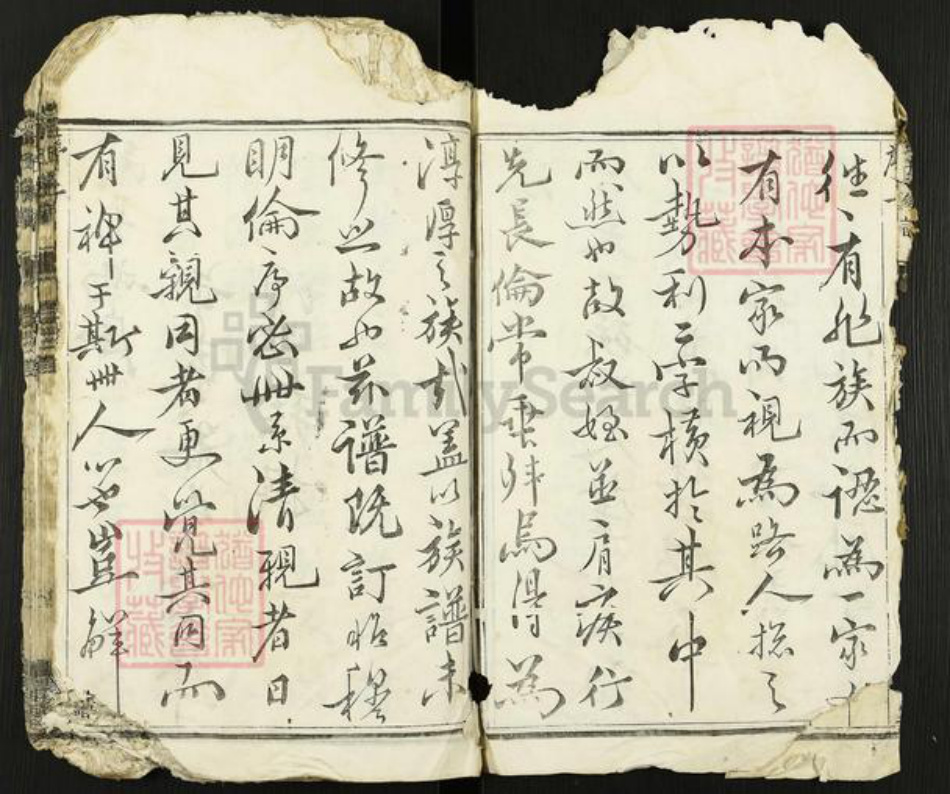 往〻有非族而認為一家
有本家而視為路人揔之
以勢利二字橫於其中
而然也故叔姪並肩疾行
先長倫常乖舛烏得為
淳厚之族哉蓋以族譜未
修之故也茲譜既訂昭穆
明倫序宓世系清親者日
見其親同者更覚其同而
有裨于斯世人心也豈鮮
FamilySearch